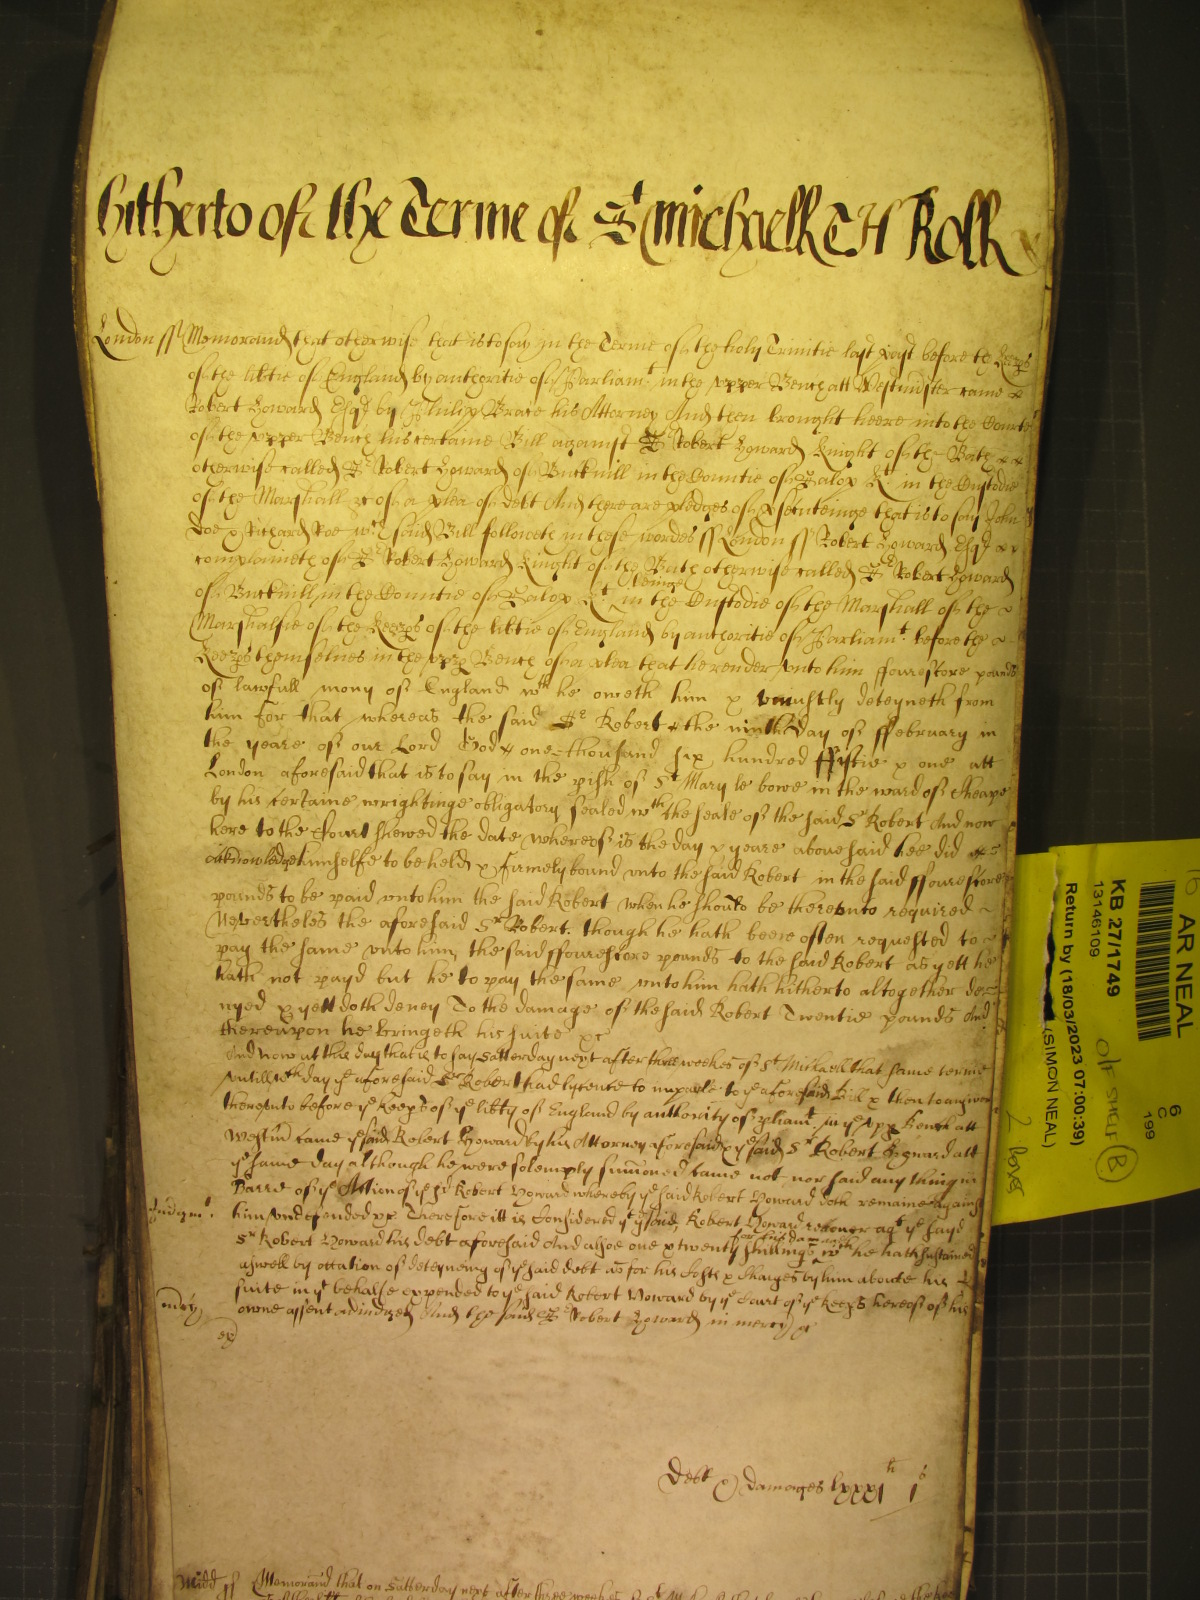 hitherto of the Terme of St Michaell TH Roll
London ss Memorand that otherwise that is to say in the Terme of the holy Trinitie last past before the Keeps
of the libtie of England by authoritie of Parliamt in the upper Bench att Westminster came
Robert Howard Esqr by Philipp Brace his Attorney And then brought heere into the Courte
of the upper Bench his certaine Bill against Sr Robert Howard Knight of the Bath
otherwise called Sr Robert Howard of Bucknill in the Countie of Salop Kt in the Custodie
of the Marshall &c of a plea of debt And there are pledges of psecuteinge that is to say John
Doe & Richard Roe wch said Bill followeth in these wordes ss London ss Robert Howard Esqr
complaineth of Sr Robert Howard Knight of the Bath otherwise called Sr Robert Howard
of Bucknill in the Countie of Salop Kt beinge in the Custodie of the Marshall of the
Marshalsie of the Keeps of the libtie of England by authoritie of Parliamt before the
Keeps themselves in the upp Bench of a plea that he render unto him ffourescore pounds
of lawfull mony of England wch he oweth him & uniustly deteyneth from
him For that whereas the said Sr Robert the ninth Day of ffebruary in
the yeare of our Lord God one thousand six hundred ffiftie & one att
London aforesaid that is to say in the pish of St Mary le bowe in the ward of Cheape
by his certaine wrightinge obligatory sealed wth the seale of the said Sr Robert And now
here to the Court shewed the date whereof is the day & yeare abovesaid hee did
acknowledge himselfe to be held & firmely bound unto the said Robert in the said ffourescore
pounds to be paid unto him the said Robert when he should be thereunto required
Nevertheles the aforesaid Sr Robert though he hath beene often requested to
pay the same unto him, the said ffourescore pounds to the said Robert as yett he
hath not payd but he to pay the same unto him hath hitherto altogether de-
nyed & yett doth deney To the damage of the said Robert Twentie pounds And
thereupon he bringeth his suite &c
And now at this day that is to say Satterday next after three weekes of St Michaell that same terme
untill wch day ye aforesaid Sr Robert had lycence to imparle to ye aforesaid Bill & then to answer
thereunto before ye keeps of ye libty of England by authority of pliamt in ye upp Bench att
Westm came ye said Robert Howard by his Attorney aforesaid & ye said Sr Robert Howard att
ye same day although he were solemply sumoned came not nor said any thing in
Barre of ye Action of ye sd Robert Howard whereby ye said Robert Howard doth remaine against
Judgmt. him undefended &c Therefore itt is Considered yt ye said Robert Howard recover agt ye sayd
Sr Robert Howard his debt aforesaid And alsoe one & twenty shillings for his damages wch he hath susteined
aswell by occation of deteyneing of ye said debt as for his Costs & Charges by him aboute his
suite in yt behalfe expended to ye said Robert Howard by ye Court of ye keeps hereof of his
mcy owne assent adiudged And the said Sr Robert Howard in mercy &c
Debt & damages lxxxj li js
Midd ss Memorand that on Satterday next after three weekes
AR NEAL
6
C
199
KB 27/1749
13146109
Return by (18/03/2023 07:00:39)
(SIMON NEAL)
O/F SHELF B
2 boxes